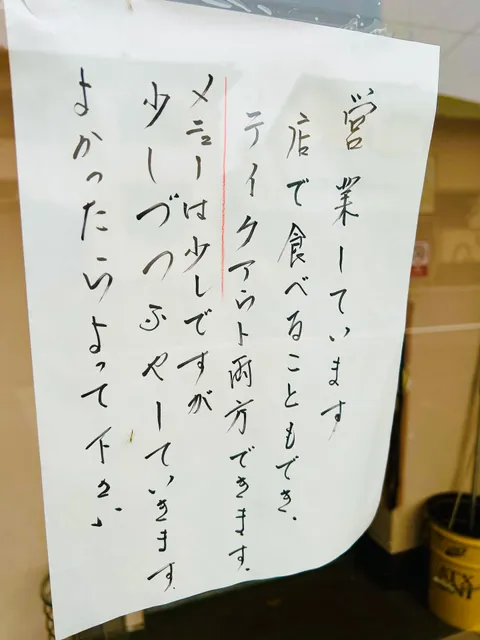 営業しています
店で食べることもでき、
テイクアウト両方できます。
メニューは少しですが
少しづつふやしていきます。
よかったらよって下さい